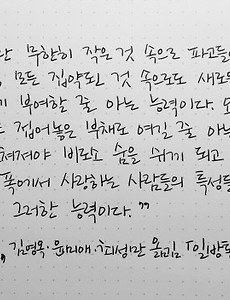 무한히 작은 것 속으로 파고들
모든 집약된 것 속으로도 새로운
부여할 줄 아는 능력이다. 모
접어놓은 부채로 여길 줄 아는
펴져야 비로소 숨을 쉬게 되고
폭에서 사랑하는 사람들의 특성들
그러한 능력이다."
김영옥·윤미애·최성만 옮김 「일방통